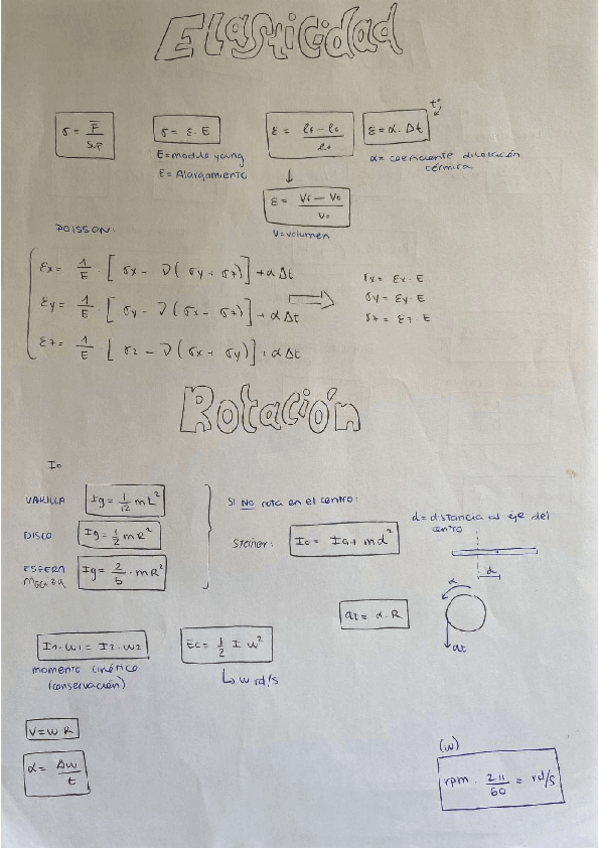 Elasticidad
σ = F̅ / Sup
σ = ε · E
ε = (lf − lo) / lo
ε = α · Δt
tª
E = modulo young
ε = Alargamiento
α = coeficiente dilatación
térmica
↓
ε = (Vf − Vo) / Vo
V = volumen
POISSON:
εx = 1/E · [σx − ν(σy + σz)] + α Δt
εy = 1/E · [σy − ν(σx − σz)] + α Δt
εz = 1/E [σz − ν(σx + σy)] + α Δt
σx = εx · E
σy = εy · E
σz = εz · E
Rotación
Io
VARILLA Ig = 1/12 mL²
DISCO Ig = 1/2 mR²
ESFERA Ig = 2/5 · mR²
SI NO rota en el centro:
Steiner: Io = IG + md²
d = distancia al eje del
centro
d
at = α · R
α
at
I1 · ω1 = I2 · ω2
momento cinético
(conservación)
Ec = 1/2 I ω²
↳ ω rd/s
V = ω R
α = Δω / t
(ω)
rpm · 2π/60 = rd/s